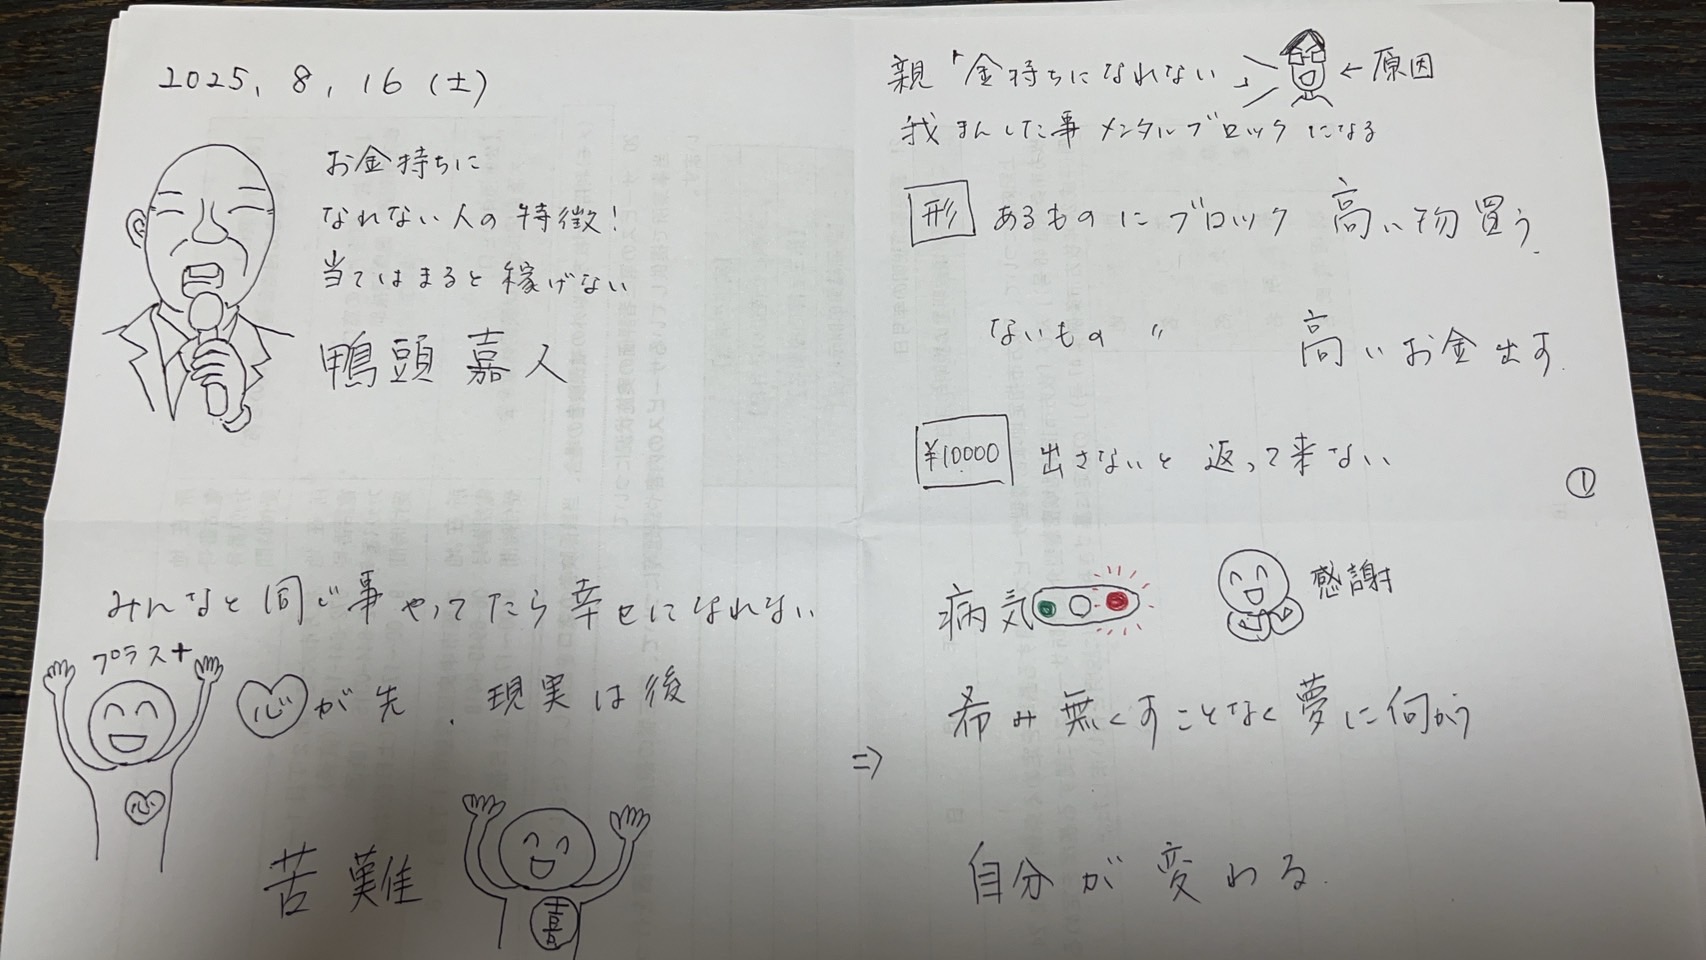 2025, 8, 16 (土)
お金持ちに
なれない人の特徴!
当てはまると稼げない
鴨頭 嘉人
親「金持ちになれない」 ← 原因
我まんした事メンタルブロックになる
形 あるものにブロック 高い物買う.
ないもの 〃 高いお金出す.
¥10000 出さないと返って来ない
①
みんなと同じ事やってたら幸せになれない
プラス+
心が先. 現実は後
心
苦難
喜
⇒
病気
感謝
希み無くすことなく夢に向かう
自分が変わる.